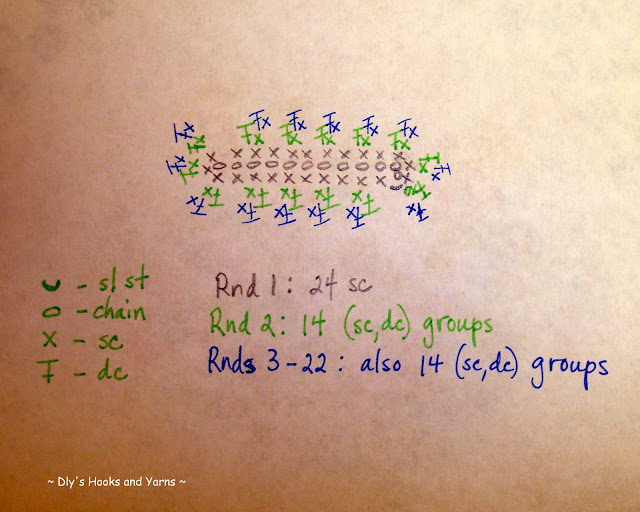 - sl st
- chain
x - sc
- dc
Rnd 1: 24 sc
Rnd 2: 14 (sc, dc) groups
Rnds 3-22: also 14 (sc, dc) groups
~ Dly's Hooks and Yarns ~